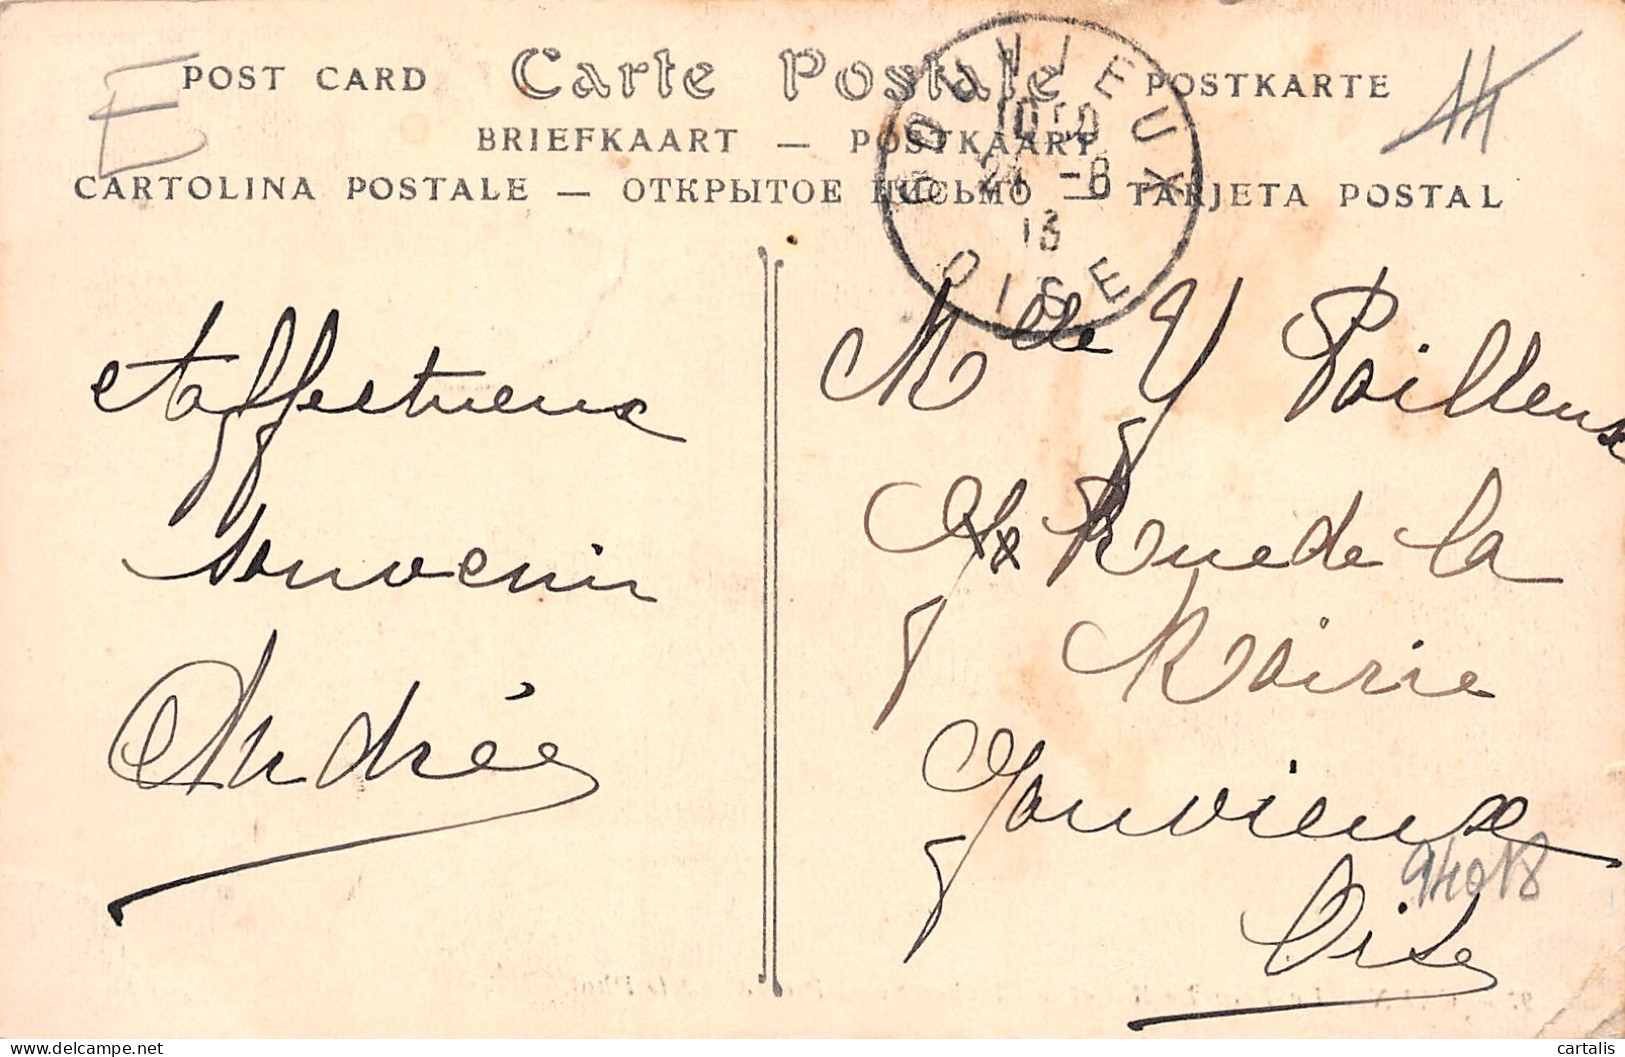 POST CARD Carte Postale POSTKARTE
BRIEFKAART — POSTKAART
CARTOLINA POSTALE — ОТКРЫТОЕ ПИСЬМО — TARJETA POSTAL
E
GOUVIEUX
24 -8
13
OISE
Affectueux
souvenir
Andrée
Mlle Y Pailleux
Rue de la
Mairie
Gouvieux
Oise
94018
cartalis